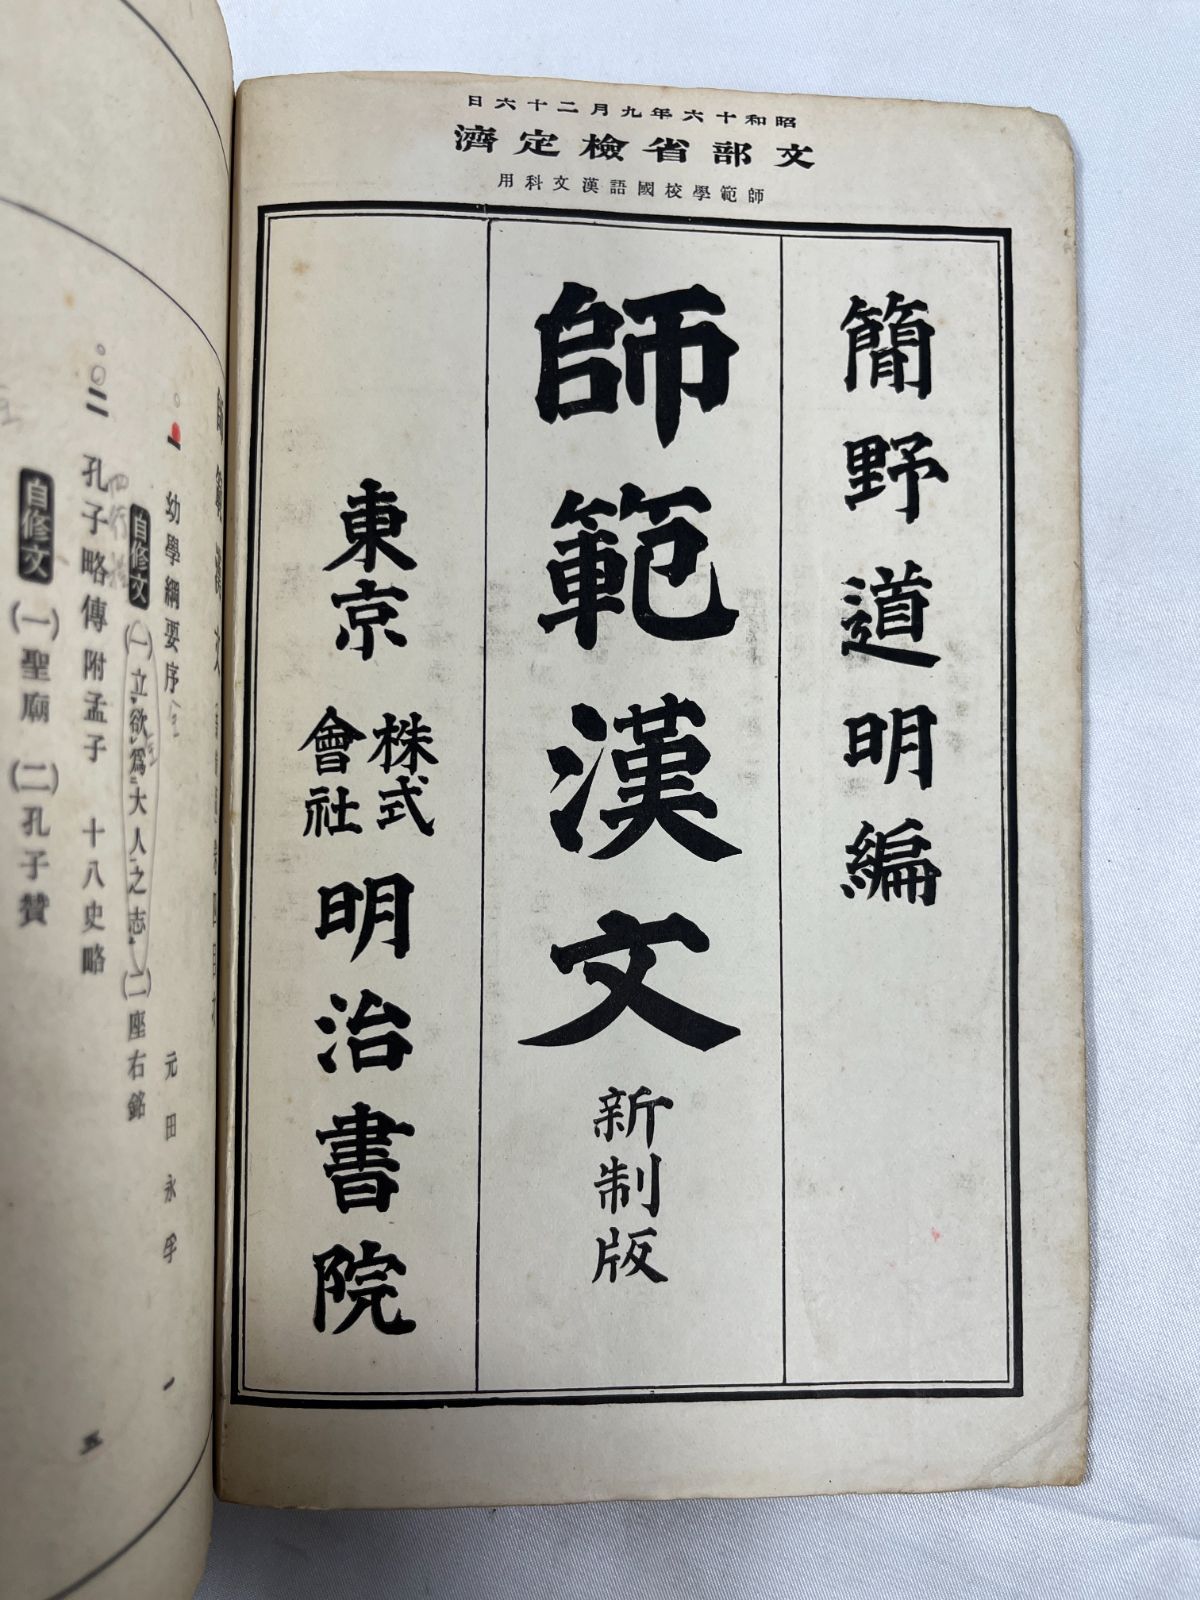 昭和十六年九月二十六日
文部省檢定濟
師範學校國語漢文科用
簡野道明編
師範漢文 新制版
東京 株式會社 明治書院
一 幼學綱要序 元田永孚 一
自修文 (一)立欲爲大人之志 (二)座右銘
二 孔子略傳附孟子 十八史略 五
自修文 (一)聖廟 (二)孔子贊